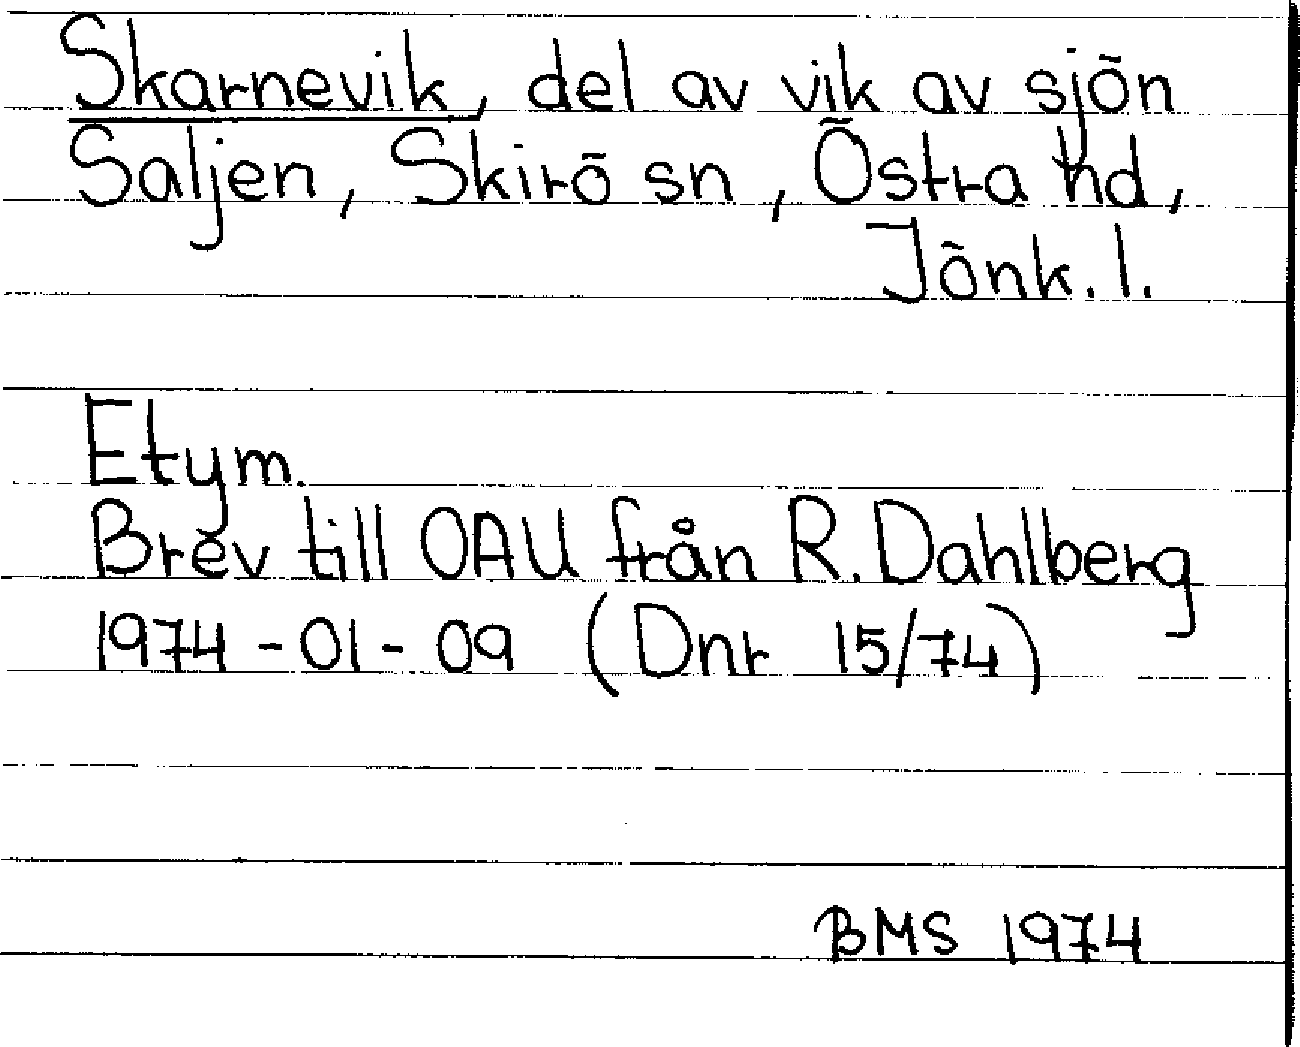 Skarnevik, del av vik av sjön
Saljen, Skirö sn, Östra hd,
Jönk. l.
Etym.
Brev till OAU från R. Dahlberg
1974-01-09 (Dnr 15/74)
BMS 1974